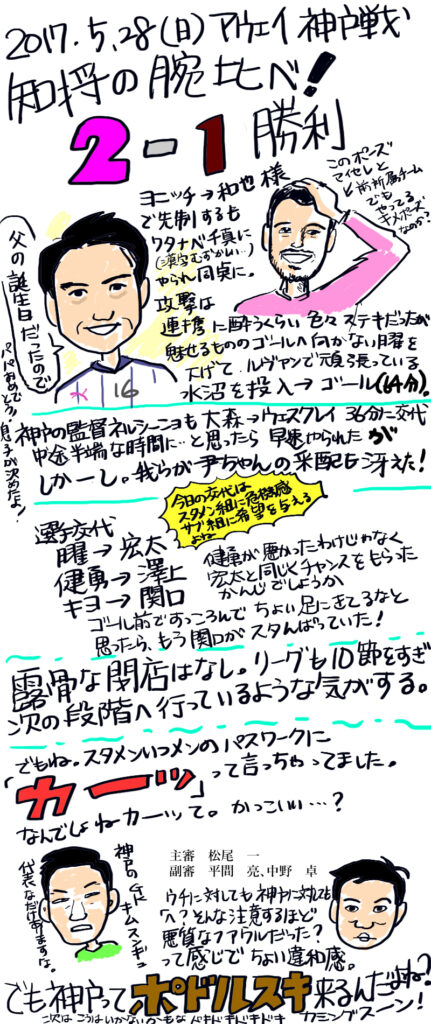 2017.5.28(日)アウェイ神戸戦
知将の腕比べ!
2-1勝利
ヨニッチ→和也様
で先制するも
ワタナベ千真に
やられ同実に。
攻撃は
連携に酔うくらい色々ステキだったが
魅せるもののゴールへ向かない曜を
下げて、ルヴァンで頑張っている
水沼を投入→ゴール(64分)。
このポーズ
前所属チーム
でも
やってる
キメポーズ
なのか?
父の誕生日だったので
パパおめでとう!息子が決めたよ!
水 16
神戸の監督ネルシーニョも大森→ウエスクレイ 36分に交代
中途半端な時間に…と思ったら早速やられたが
しかーし。我らが尹ちゃんの采配も冴えた!
今日の交代は
スタメン組に危機感
サブ組に希望を与える
よね
選手交代
曜→宏太
健勇→澤上
キヨ→関口
健勇が悪かったわけじゃなく
宏太と同じくチャンスをもらった
かんじでしょうか
ゴール前ですっころんでちょい足にきてるなと
思ったら、もう関口がスタんばっていた!
露骨な閉店はなし。リーグも10節をすぎ
次の段階へ行っているような気がする。
でもね。スタメンいつメンのパスワークに
「カーッ」って言っちゃってました。
なんでしょねカーッて。かっこいい…?
神戸のGKキムスンギュ
代表なだけありますな。
主審 松尾 一
副審 平間 亮、中野 卓
ウチに対しても神戸に対しても
へ?そんな注意するほど
悪質なファウルだった?
って感じでちょい違和感。
でも神戸ってポドルスキ来るんだよね?
次はこうはいかないかもな ドキドキドキドキ カミングスーン!